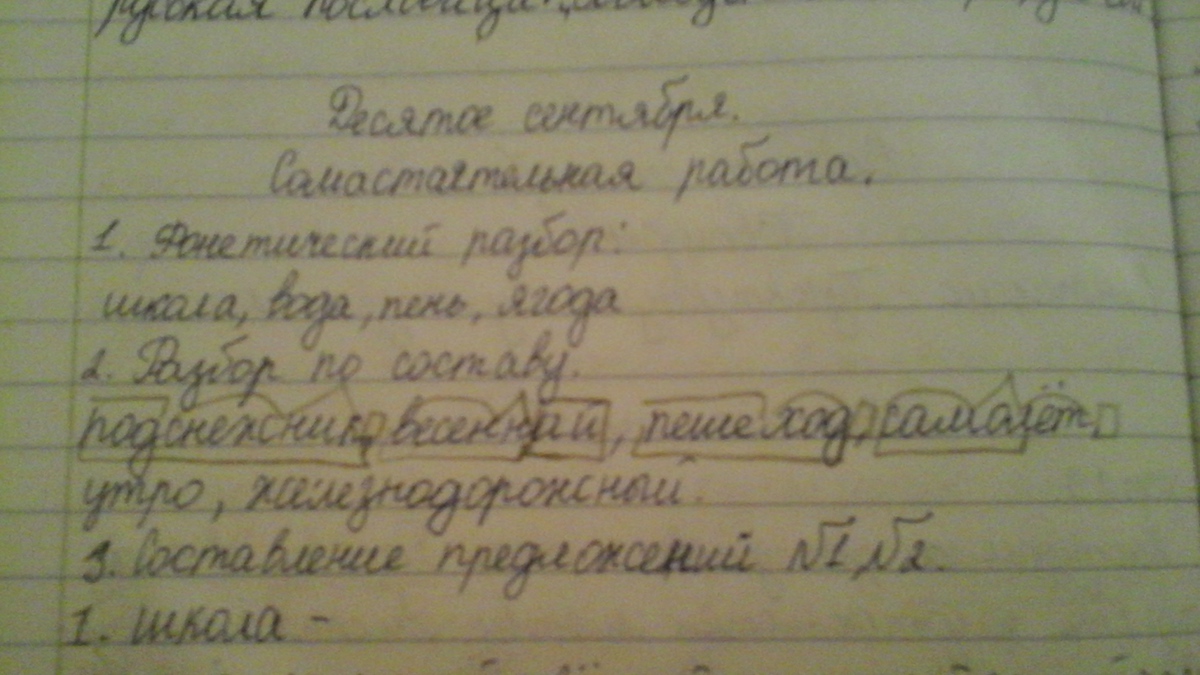 Русская пословица
Десятое сентября.
Самастаятельная работа.
1. Фонетический разбор:
школа, вода, пень, ягода
2. Разбор по составу.
подснежник, весенний, пешеход, самолёт,
утро, железнодорожный.
3. Составление предложений №1, №2.
1. школа -